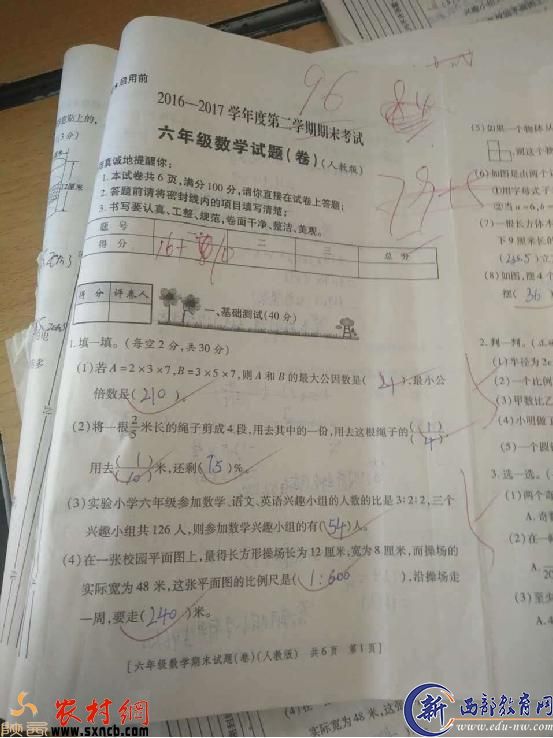 启用前
96
84
2016—2017学年度第二学期期末考试
六年级数学试题(卷)(人教版)
真诚地提醒你:
1.本试卷共6页,满分100分,请你直接在试卷上答题;
2.答题前请将密封线内的项目填写清楚;
3.书写要认真、工整、规范,卷面干净、整洁、美观。
题号 一 二 三 总分
得分
得分 评卷人
一、基础测试(40分)
1.填一填。(每空2分,共30分)
(1)若A=2×3×7,B=3×5×7,则A和B的最大公因数是(21),最小公
倍数是(210)。
(2)将一根2/5米长的绳子剪成4段,用去其中的一份,用去这根绳子的(1)/(4),
用去(1)/(10)米,还剩(75)%。
(3)实验小学六年级参加数学、语文、英语兴趣小组的人数的比是3:2:2,三个
兴趣小组共126人,则参加数学兴趣小组的有(54)人。
(4)在一张校园平面图上,量得长方形操场长为12厘米,宽为8厘米,而操场的
实际宽为48米,这张平面图的比例尺是(1:600),沿操场走
一周,要走(240)米。
[六年级数学期末试题(卷)(人教版) 共6页 第1页]
(5)如果一个物体从
(6)如图是由两个
①用字母式子
②当a=6,b=
(7)一根长方体木
下9厘米长的
(8)如图,摆4个
摆(36
2.判一判。
(1)半径为2
(2)一个比例
(3)甲数比乙
(4)小明做了
(5)一个圆
3.选一选。
(1)两个奇
A.奇数
(2)在一
(3)至少
A.4
2厘米
实际宽为48米,这张
农村网
www.sxncb.com
西部教育网
www.edu-nw.com